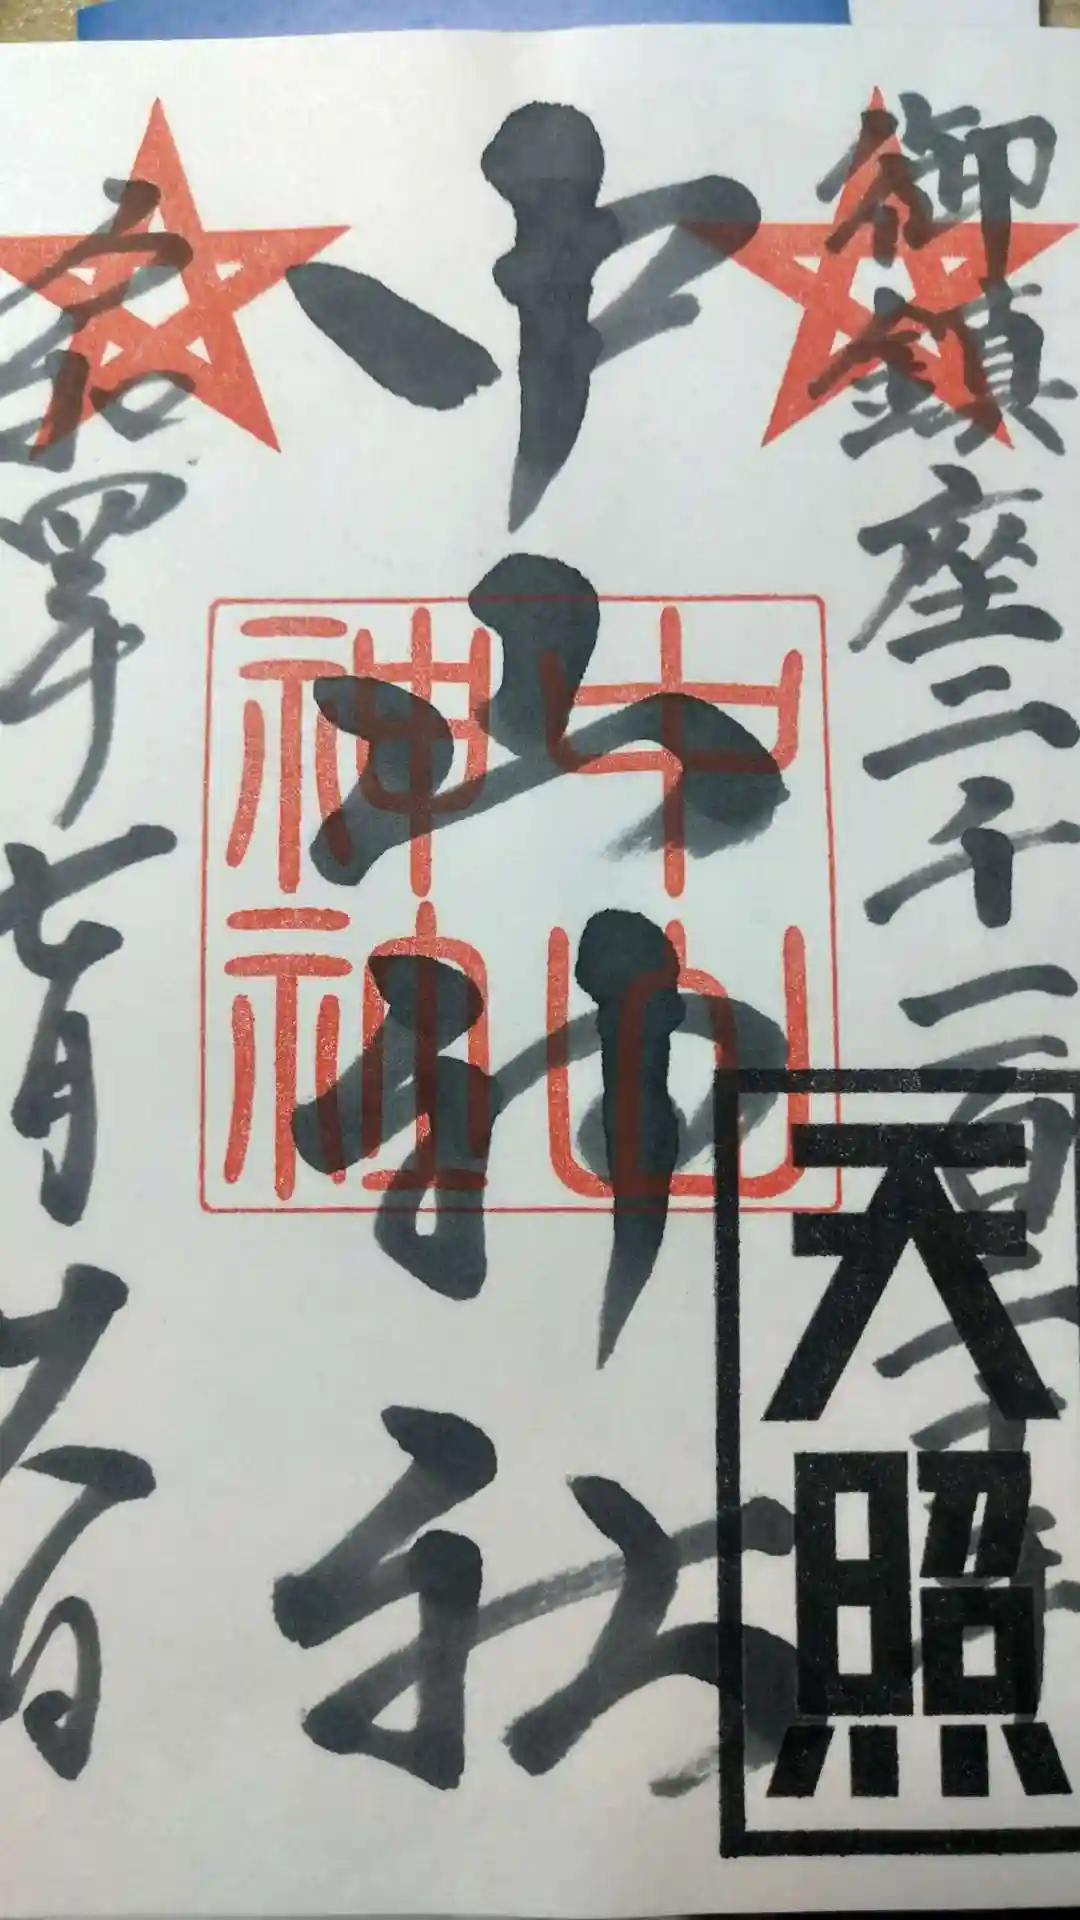 御鎮座二千一百二十年
中山神社
中山
神社
天照
令和四年七月